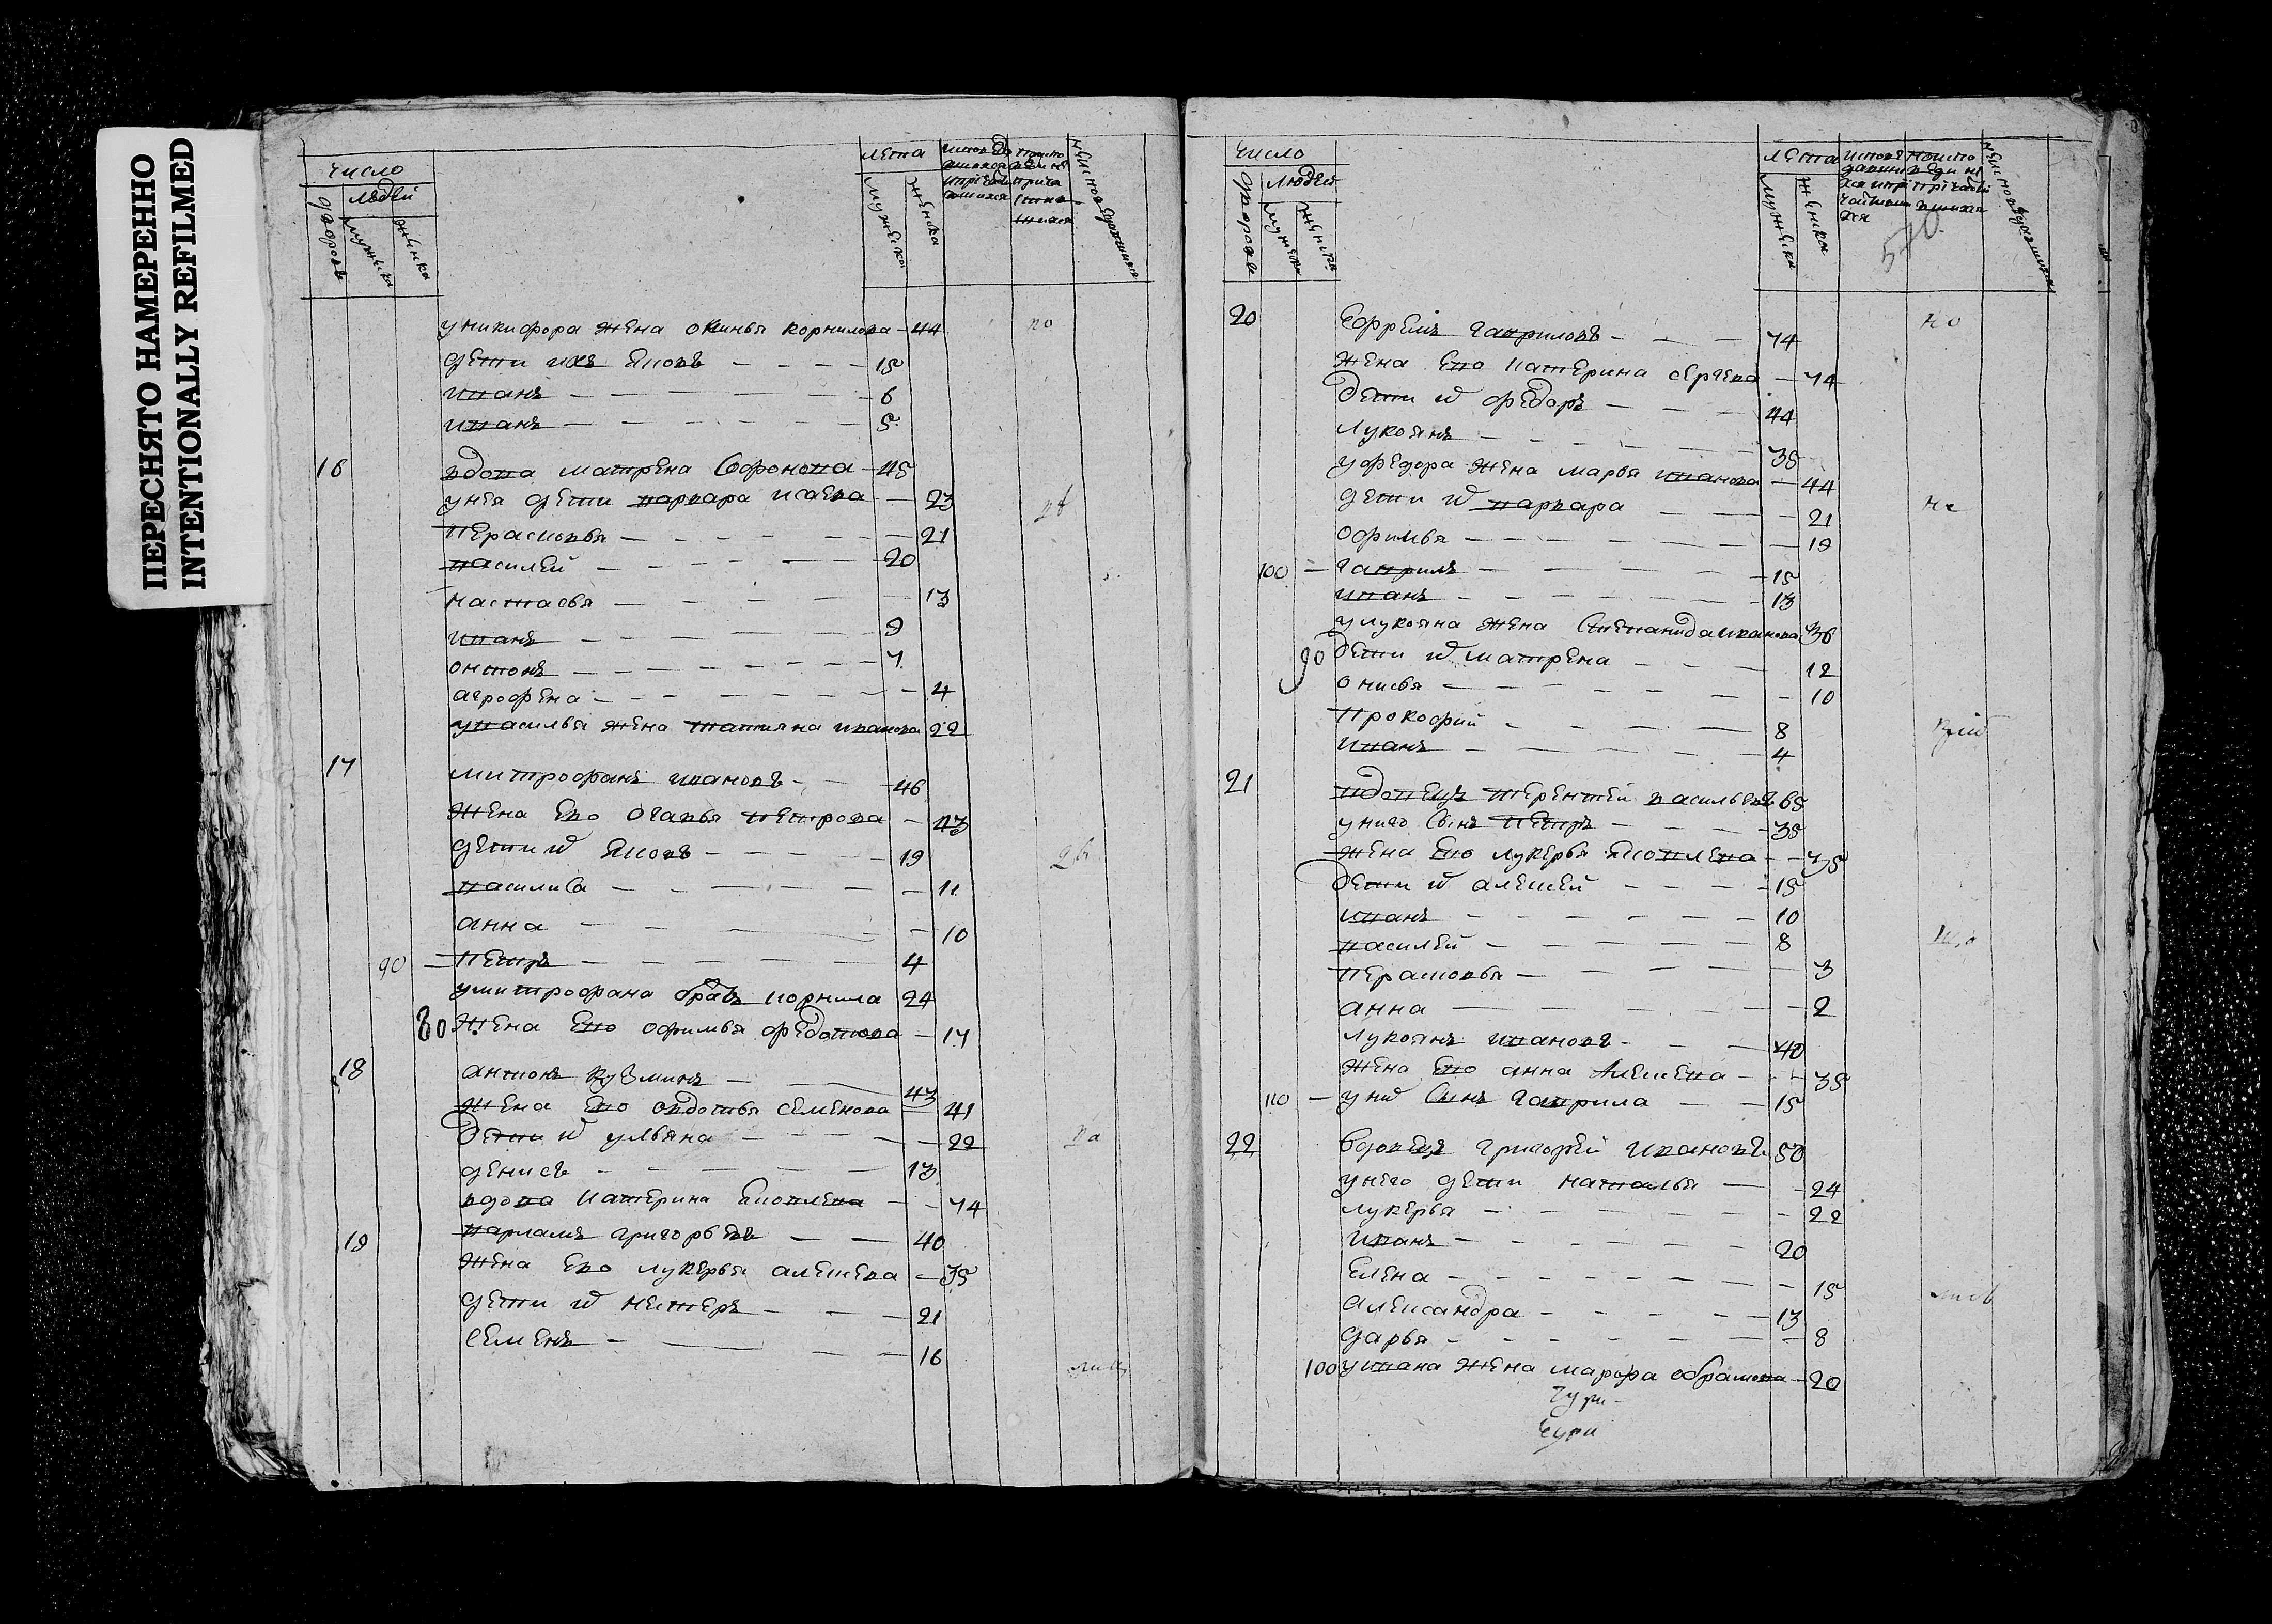 ПЕРЕСНЯТО НАМЕРЕННО
INTENTIONALLY REFILMED
число
людей
дворовъ
мужеска
женска
лета
мужеска
женска
уникифора жена окинья корнилова 44
дети ихъ яковъ 15
иванъ 6
иванъ 5
16 вдова матрена Софонова 45
унея дети варвара исаева 23
перасковья 21
василей 20
настасья 13
иванъ 9
онтонъ 7
агрофена 4
увасилья жена татияна иванова 22
17 митрофанъ ивановъ 46
жена ево огавья петрова 43
дети ѿ яковъ 19
василиса 11
анна 10
90 петръ 4
умитрофана братъ корнила 24
80 жена ево офимья федотова 17
18 антонъ кузминъ 43
жена ево овдотья семенова 41
дети ѿ ульяна 22
денисъ 13
вдова катерина яковлева 74
19 варламъ григорьевъ 40
жена ево лукерья алексеева 35
дети ѿ нестеръ 21
семенъ 16
число
людей
дворовъ
мужеска
женска
лета
мужеска
женска
570
20 Еффремъ гавриловъ 74
жена ево катерина сергева 74
дети ѿ федоръ 44
лукоянъ 35
уфедора жена марья иванова 44
дети ѿ варвара 21
офимья 19
100 гаврилъ 15
иванъ 13
улукояна жена Степанида иванова 36
90 дети ѿ матрена 12
онисья 10
прокофий 8
иванъ 4
21 вдовецъ терентей васильевъ 65
унего сынъ петръ 35
жена ево лукерья яковлева 35
дети ѿ алексей 15
иванъ 10
василей 8
перасковья 3
анна 2
лукоянъ ивановъ 40
жена ево анна алексева 35
110 униѿ сынъ гаврила 15
22 вдовецъ григорей ивановъ 50
унего дети наталья 24
лукерья 22
иванъ 20
елена 15
александра 13
дарья 8
100 уивана жена марфа обрамова 20